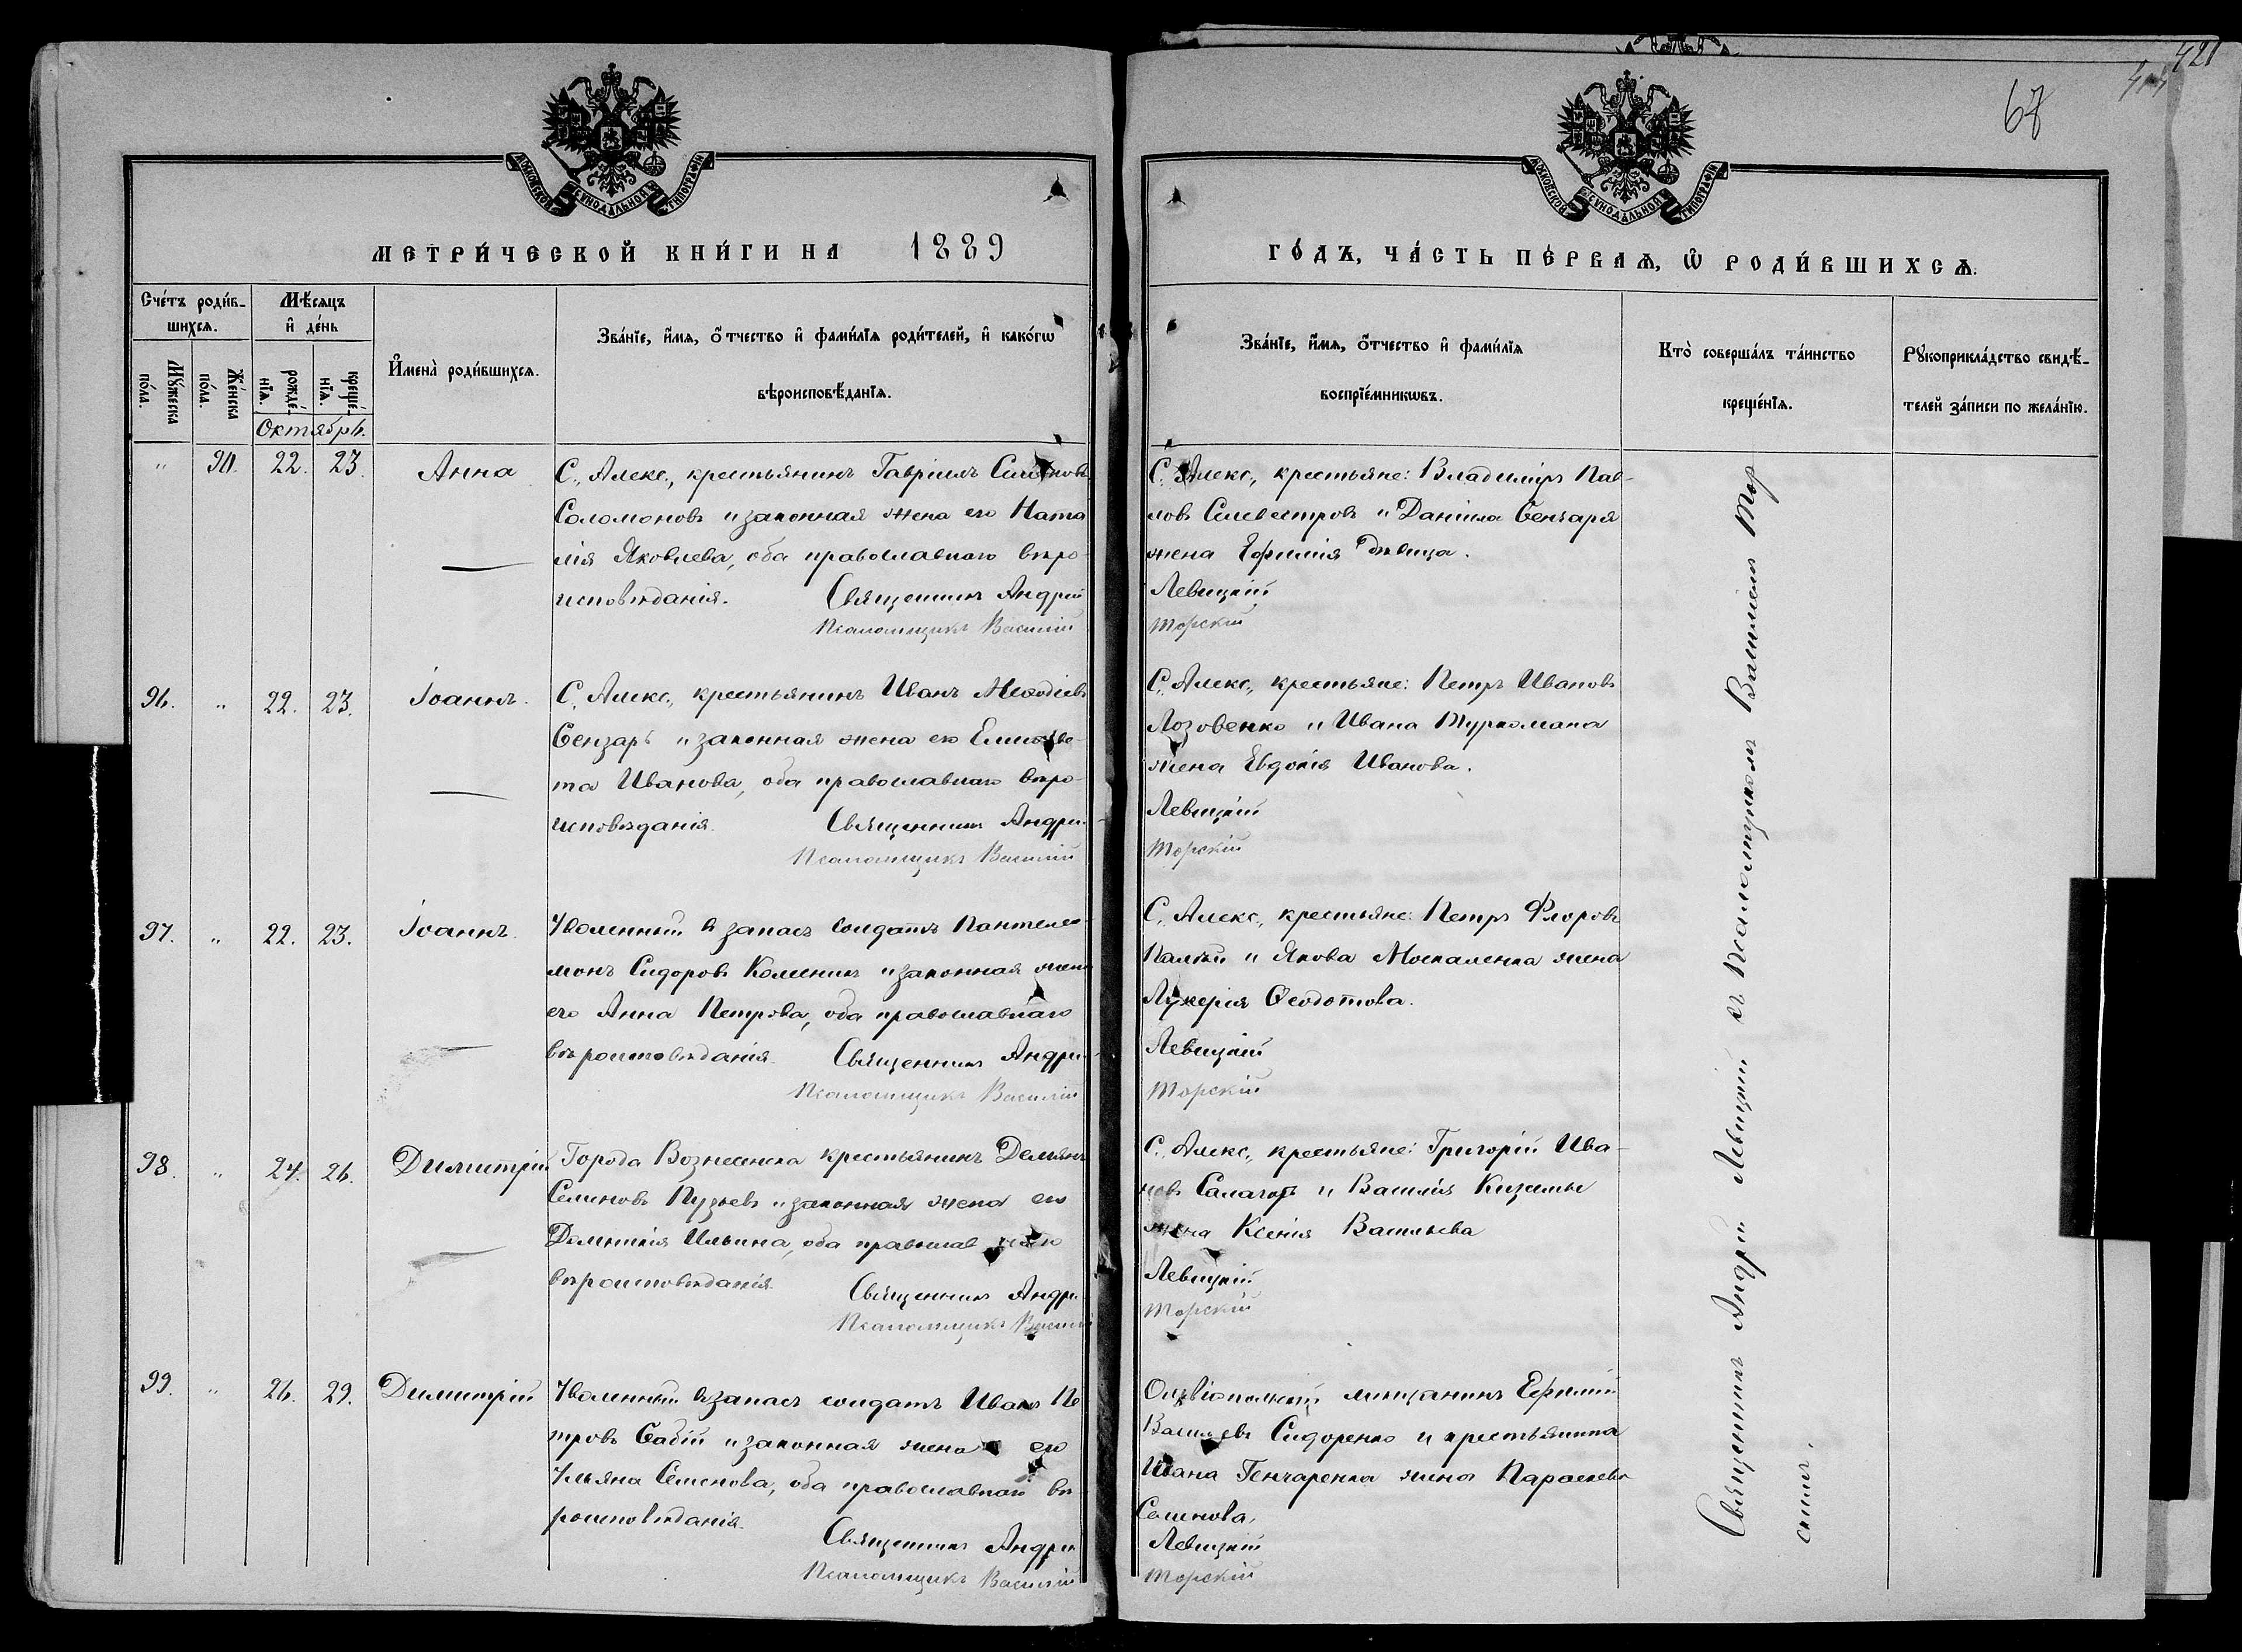 421
67
МОСКОВСКОЙ СѴНОДАЛЬНОЙ ТИПОГРАФІИ
МОСКОВСКОЙ СѴНОДАЛЬНОЙ ТИПОГРАФІИ
МЕТРИ́ЧЕСКОЙ КНИ́ГИ НА 1889
ГО́ДЪ, ЧА́СТЬ ПЕ́РВАѦ, Ѡ РОДИ́ВШИХСѦ.
Счéтъ роди́в-
шихсѧ.
Мѣ́сѧцъ
и҆ дéнь
Мꙋ́жеска
пóла.
Жéнска
пóла.
рождé-
нїѧ.
крещé-
нїѧ.
Октябрь.
И҆менà роди́вшихсѧ.
Звáнїе, и҆́мѧ, ѻ҆́тчество и҆ фами́лїѧ роди́телей, и҆ какóгѡ
вѣроисповѣ́данїѧ.
Звáнїе, и҆́мѧ, ѻ҆́тчество и҆ фами́лїѧ
воспрїéмникѡвъ.
Ктò совершáлъ тáинство
крещéнїѧ.
Рꙋкоприклáдство свидѣ́-
телей зáписи по желáнїю.
" 90. 22. 23. Анна
С. Алекс., крестьянинъ Гавріилъ Симоновъ
Соломоновъ и законная жена его Ната
лія Яковлева, оба православнаго вѣро-
исповѣданія. Священникъ Андрей
Псаломщикъ Василій
С. Алекс., крестьяне: Владиміръ Пав-
ловъ Сильвестровъ и Даніила Бензаря
жена Ефимія дѣвица.
Левицкій
Торскій
96. " 22. 23. Іоаннъ.
С. Алекс., крестьянинъ Иванъ Меѳодіевъ
Бензарь и законная жена его Елисаве-
та Иванова, оба православнаго вѣро-
исповѣданія. Священникъ Андрей
Псаломщикъ Василій
С. Алекс., крестьяне: Петръ Ивановъ
Лозовенко и Ивана Туркомана
жена Евдокія Иванова.
Левицкій
Торскій
97. " 22. 23. Іоаннъ.
Уволенный въ запасъ солдатъ Пантелеи-
монъ Сидоровъ Коленикъ и законная жена
его Анна Петрова, оба православнаго
вѣроисповѣданія. Священникъ Андрей
Псаломщикъ Василій
С. Алекс., крестьяне: Петръ Флоровъ
Палій и Якова Москаленка жена
Лукерія Ѳеодотова.
Левицкій
Торскій
98. " 24. 26. Димитрій
Города Вознесенска крестьянинъ Демьянъ
Семеновъ Пузыевъ и законная жена его
Домникія Ильина, оба православнаго
вѣроисповѣданія. Священникъ Андрей
Псаломщикъ Василій
С. Алекс., крестьяне: Григорій Ива-
новъ Саламоръ и Василія Киземы
жена Ксенія Васильева
Левицкій
Торскій
99. " 26. 29. Димитрій
Уволенный въ запасъ солдатъ Иванъ Пе
тровъ Бабій и законная жена его
Ульяна Семенова, оба православнаго вѣ
роисповѣданія.
Священникъ Андрей
Псаломщикъ Василій
Ольвіопольскій мѣщанинъ Ефимій
Васильевъ Сидоренко и крестьянина
Ивана Гончаренка жена Параскева
Семенова.
Левицкій
Торскій
Священникъ Андрей Левицкій съ псаломщикомъ Василіемъ Тор
скимъ.